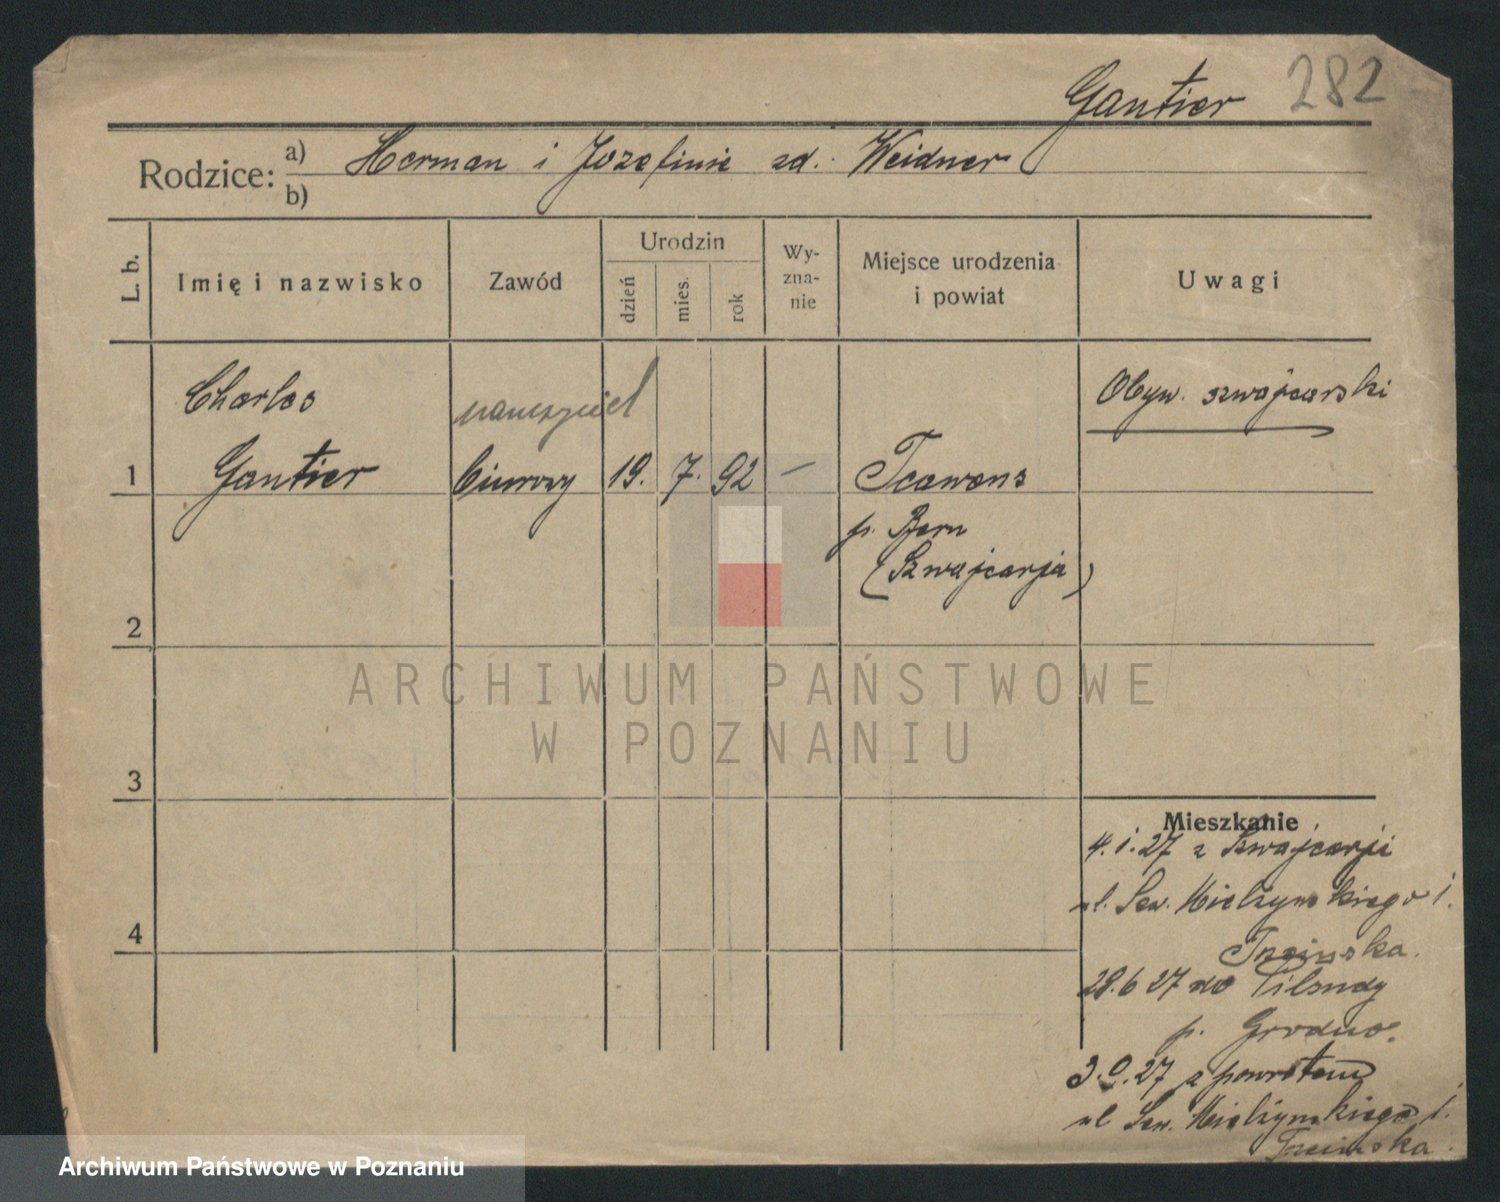 Gantier 282
Rodzice: a) Herman i Jozefinie zd. Weidner
b)
L. b. Imię i nazwisko Zawód Urodzin dzień mies. rok Wy-zna-nie Miejsce urodzenia i powiat Uwagi
Charles nauczyciel Obyw. szwajcarski
1 Gantier biurowy 19. 7. 92 — Tcawons
p. Bern
(Szwajcarja)
2
ARCHIWUM PAŃSTWOWE
W POZNANIU
3
Mieszkanie
4. 1. 27 z Szwajcarji
ul. Sew. Mielżyńskiego 1.
4
28. 6 27 do
p. Grodno.
27 z powrotem
ul Sew. Mielżyńskiego 1.
Archiwum Państwowe w Poznaniu